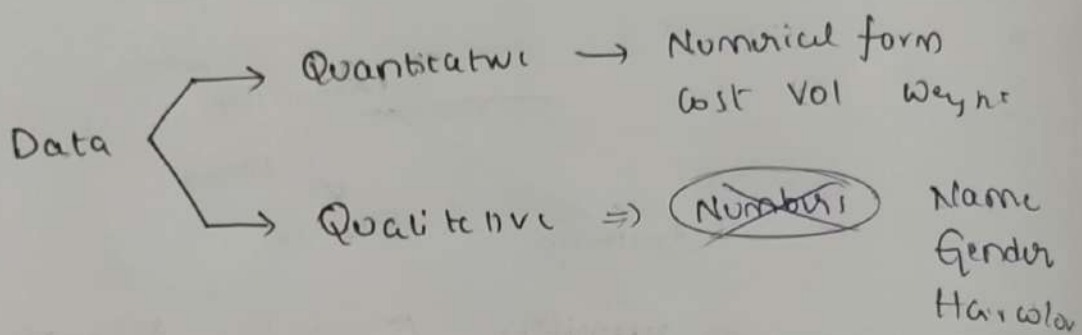 Quantitative → Numerical form
Cost Vol Weight
Data
Qualitative ⇒ Numbers Name
Gender
Hair color